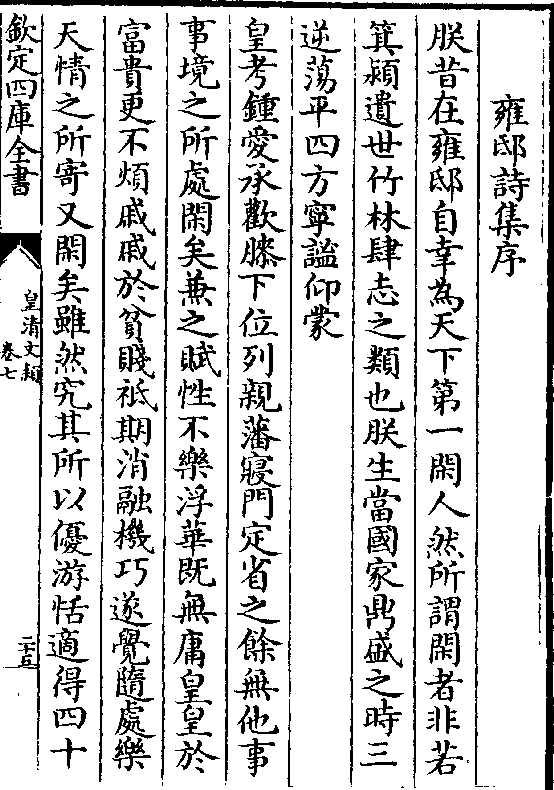 雍邸詩集序
朕昔在雍邸自幸為天下第一閑人然所謂閑者非若
箕潁遺世竹林肆志之類也朕生當國家鼎盛之時三
逆蕩平四方寧謐仰蒙
皇考鍾愛承歡膝下位列親藩寢門定省之餘無他事
事境之所處閑矣兼之賦性不樂浮華既無庸皇皇於
富貴更不煩戚戚於貧賤祗期消融機巧遂覺隨處樂
天情之所寄又閑矣雖然究其所以優游恬適得四十
欽定四庫全書
皇清文穎
卷七
二十五